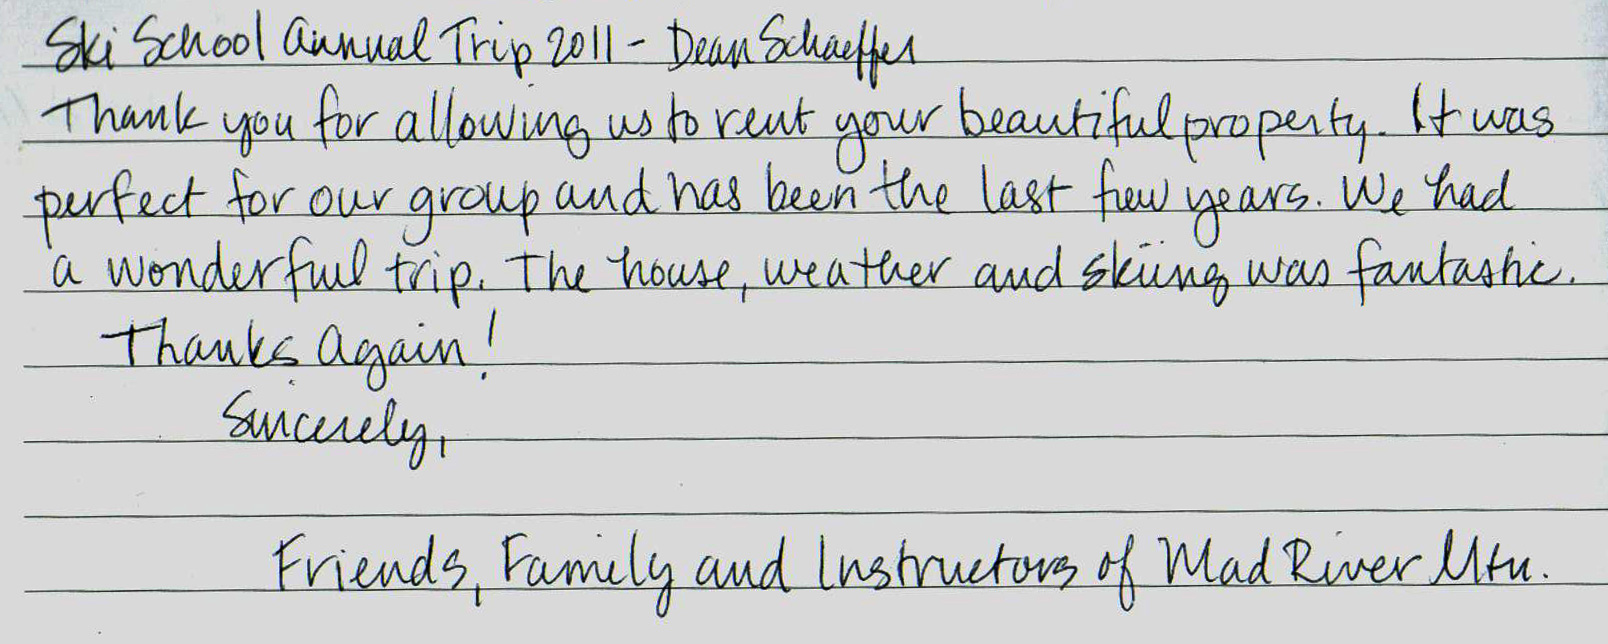 Ski School Annual Trip 2011 - Dean Schaeffer
Thank you for allowing us to rent your beautiful property. It was
perfect for our group and has been the last few years. We had
a wonderful trip. The house, weather and skiing was fantastic.
Thanks Again!
Sincerely,
Friends, Family and Instructors of Mad River Mtn.